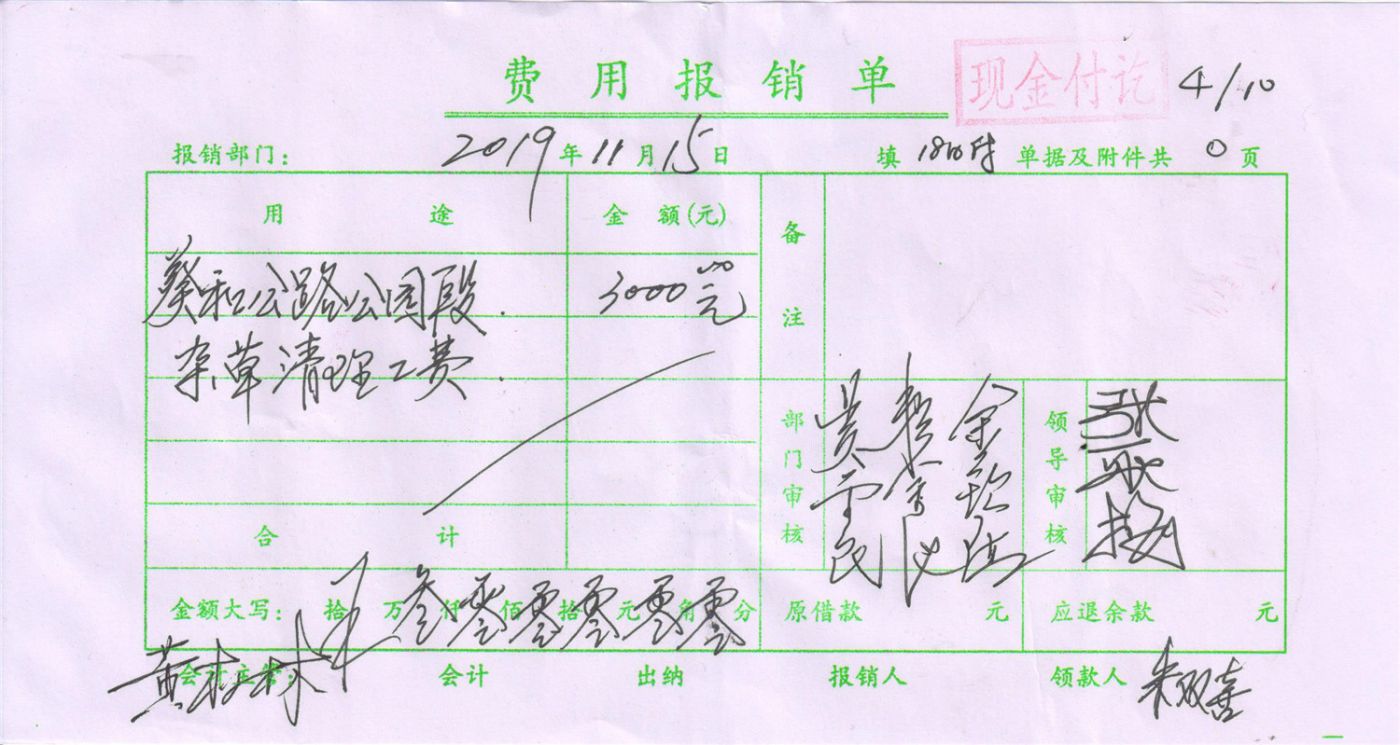 费用报销单 现金付讫 4/10
报销部门： 2019年11月15日 填 单据及附件共 0 页
用途 金额(元) 备注
葵和公路公园段. 3000.00元
杂草清理工费.
部门审核 领导审核
合计
金额大写： 拾 万 叁仟 零佰 零拾 零元 零角 零分 原借款 元 应退余款 元
会计主管： 会计 出纳 报销人 领款人 朱双喜